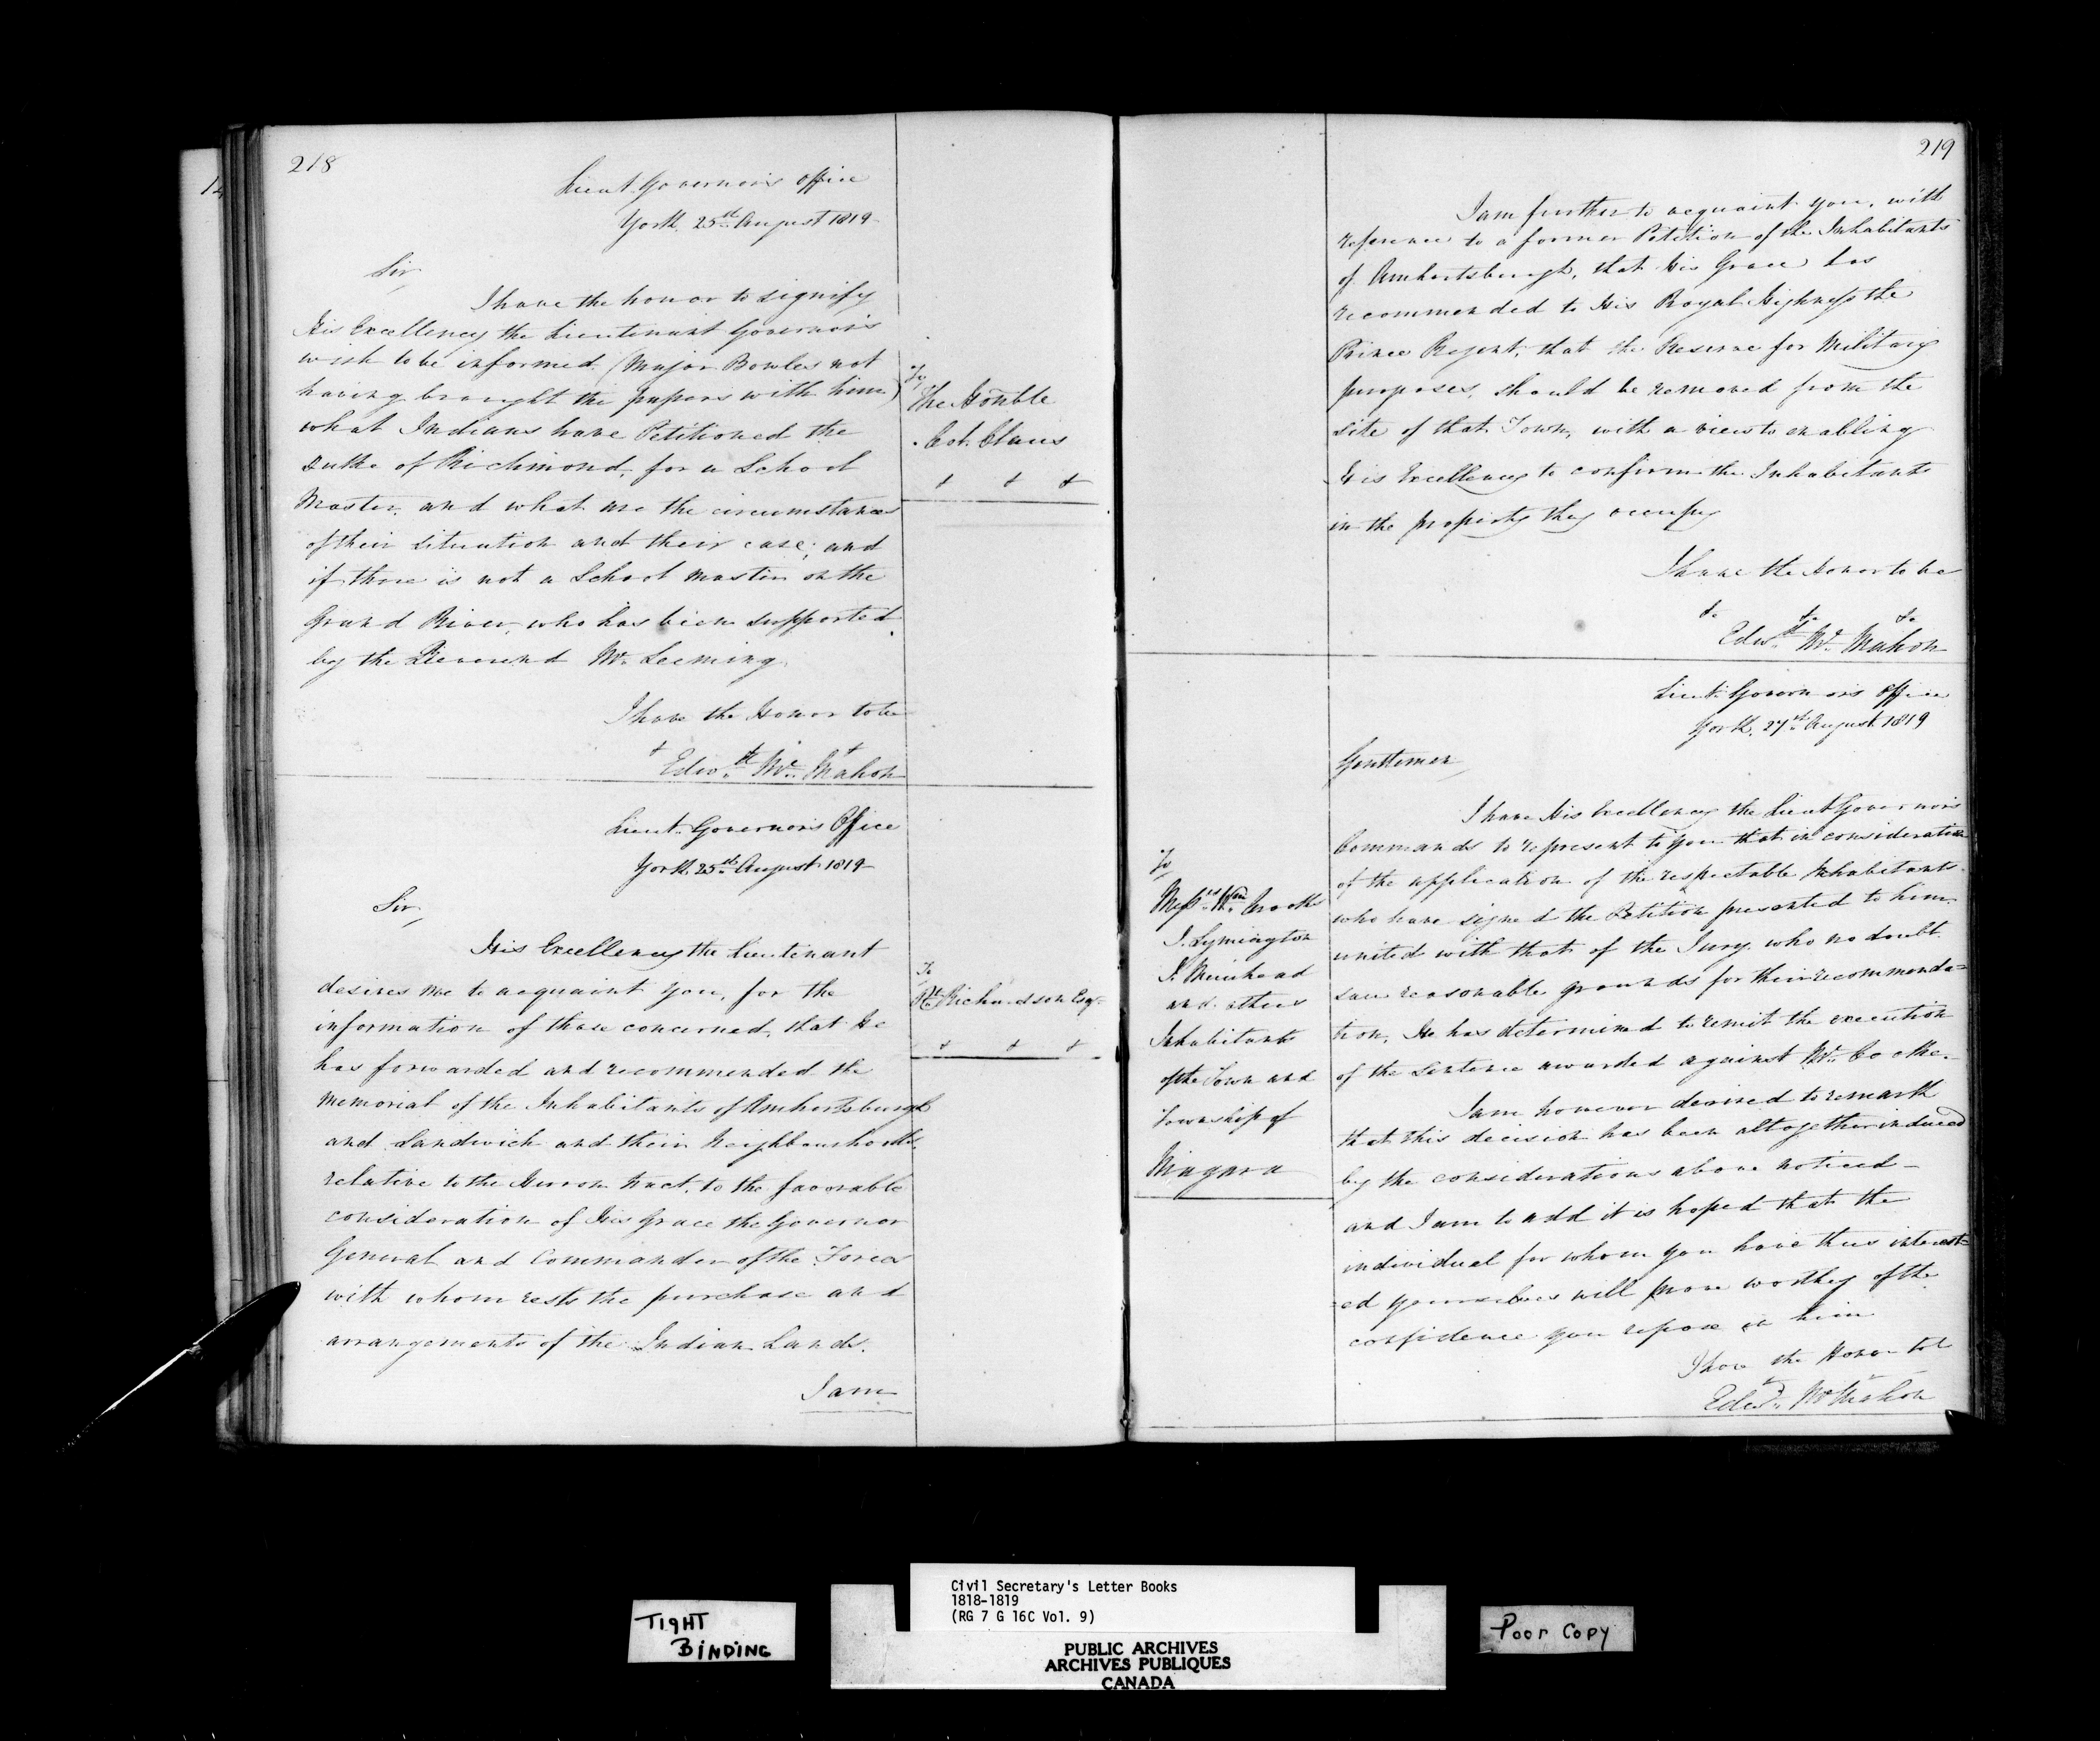 218
Lieut. Governor's Office
York 25th August 1819
Sir,
I have the honor to signify
His Excellency the Lieutenant Governor's
wish to be informed (Major Bowles not
having brought the papers with him)
what Indians have Petitioned the
Duke of Richmond, for a School
Master, and what are the circumstances
of their situation and their case; and
if there is not a School master on the
Grand River, who has been supported
by the Reverend Mr. Leeming.
I have the Honor to be
Edwd. Mc. Mahon
To
The Honble
Col. Claus
Lieut. Governor's Office
York 25th August 1819
Sir,
His Excellency the Lieutenant
desires me to acquaint you, for the
information of those concerned, that He
has forwarded and recommended the
Memorial of the Inhabitants of Amhertsburgh
and Sandwich and their Neighbourhoods,
relative to the Huron tract, to the favorable
consideration of His Grace the Governor
General and Commander of the Forces
with whom rests the purchase and
arrangements of the Indian Lands.
I am
To
Rt. Richardson Esqr.
219
I am further to acquaint you, with
reference to a former Petition of the Inhabitants
of Amhertsburgh, that His Grace has
recommended to His Royal Highness the
Prince Regent, that the Reserve for Military
purposes, should be removed from the
site of that Town, with a view to enabling
His Excellency to confirm the Inhabitants
in the property they occupy
I have the Honor to be
&c &c &c
Edwd. Mc. Mahon
Lieut. Governor's Office
York, 27th August 1819
Gentlemen,
I have His Excellency the Lieut Governor's
Commands to represent to you that in consideration
of the application of the respectable Inhabitants
who have signed the Petition presented to him
united with that of the Jury who no doubt
saw reasonable grounds for their recommenda=
tion, He has determined to remit the execution
of the Sentence awarded against Mr.
I am however desired to remark
that this decision has been altogether induced
by the considerations above noticed –
and I am to add it is hoped that the
individual for whom you have thus interest=
=ed yourselves will prove worthy of the
confidence you repose in him
I have the Honor to be
Edwd. Mc Mahon
To
Messrs. Wm. Crooks
J. Symington
J. Muirhead
and others
Inhabitants
of the Town and
Township of
Niagara
TIGHT
BINDING
Civil Secretary's Letter Books
1818-1819
(RG 7 G 16C Vol. 9)
PUBLIC ARCHIVES
ARCHIVES PUBLIQUES
CANADA
Poor Copy